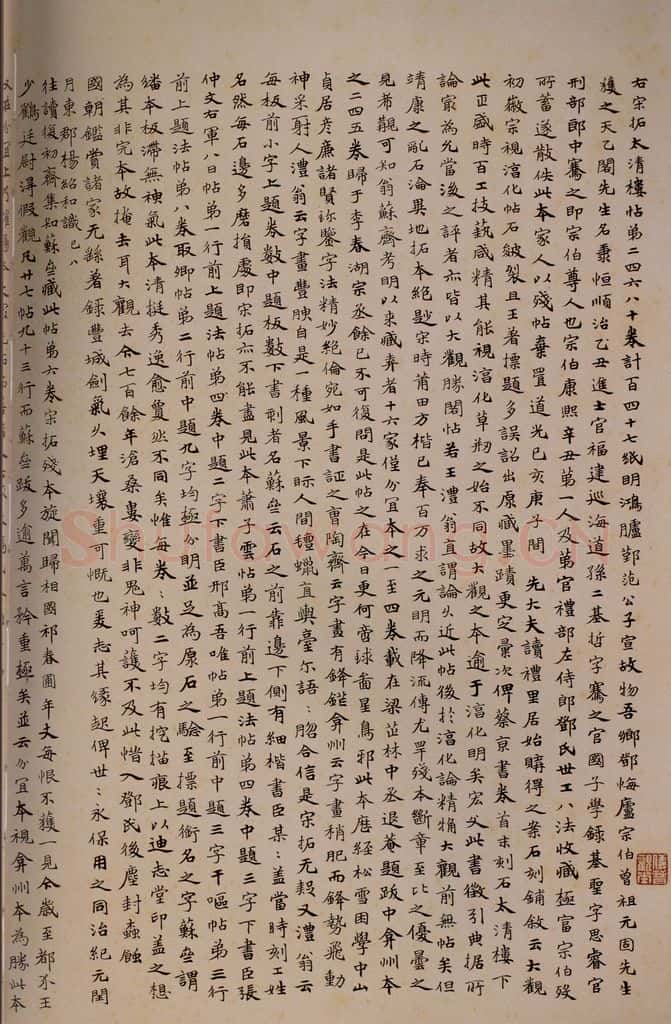 右宋拓太清樓帖第二四六八十卷計百四十七紙明鴻臚鄞范公子宣故物吾鄉鄧悔廬宗伯曾祖元固先生
獲之天乙閣先生名秉恒順治乙丑進士官福建巡海道孫二基哲字騫之官國子學錄基聖字思睿官
刑部郎中騫之即宗伯尊人也宗伯康熙辛丑第一人及第官禮部左侍郎鄧氏世工八法收藏極富宗伯歿
所蓄遂散佚此本家人以殘帖棄置道光己亥庚子間 先大夫讀禮里居始購得之案石刻鋪敘云大觀
初徽宗視淳化帖石皴裂且王著標題多誤詔出原藏墨蹟更定彙次俾蔡京書卷首末刻石太清樓下
此正盛時百工技藝咸精其能視淳化草刱之始不同故大觀之本逾于淳化明矣宏父此書徵引典據所
論家為允當後之評者亦皆以大觀勝閣帖若王澧翁直謂論以近此帖後於淳化論精犕大觀前無帖矣但
靖康之亂石淪異地拓本絕尟宋時莆田方楷已奉百万求之元明而降流傳尤罕殘本斷章至比之優曇之
見希覯可知翁蘇齋考明以來臧弆者十六家僅分宜本之一至四卷載在梁茝林中丞退菴題跋中弇州本
之二四五卷歸于李春湖宗丞餘已不可復問是此帖之在今日更何啻球啚星鳥邪此本歷經松雪困學中山
貞居彥廉諸賢珎鑒字法精妙絕倫宛如手書証之曹陶齋云字畫有鋒鋩弇州云字畫稍肥而鋒勢飛動
神采射人澧翁云字畫豐腴自是一種風景下眎人間氊蠟直輿臺尓語:脗合信是宋拓无疑又澧翁云
每板前小字上題卷數中題板數下書刺者名蘇坣云石之前靠邊下側有細楷書臣某:蓋當時刻工姓
名然每石邊多磨損處即宋拓亦不能盡見此本蕭子雲帖第一行前上題法帖弟四卷中題三字下書臣張
仲文右軍八日帖弟一行前上題法帖弟四卷中題二字下書臣邢高吾唯帖弟一行前中題三字千嘔帖弟三行
前上題法帖弟八卷取卿帖弟二行前中題九字均極分明並足為原石之驗至摽題銜名之字蘇坣謂
繙本板滯無神氣此本清挺秀逸愈賈迥不同矣惟每卷:數二字均有挖描痕上以迪志堂印蓋之想
為其非完本故掩去耳大觀去今七百餘年滄桑屢變非鬼神呵護不及此惜入鄧氏後塵封蟲蝕
國朝鑑賞諸家无繇著錄豐城劍氣乆埋天壤重可慨也爰志其緣起俾世:永保用之同治紀元閏
月東郡楊紹和識 已八
往讀復初齋集知蘇坣藏此帖弟六卷宋拓殘本旋聞歸相國祁春圃年丈每恨不獲一見今歲至都从王
少鶴廷尉淂假觀凡廿七帖九十三行而蘇坣跋多逾萬言矜重極矣並云分宜本視弇州本為勝此本